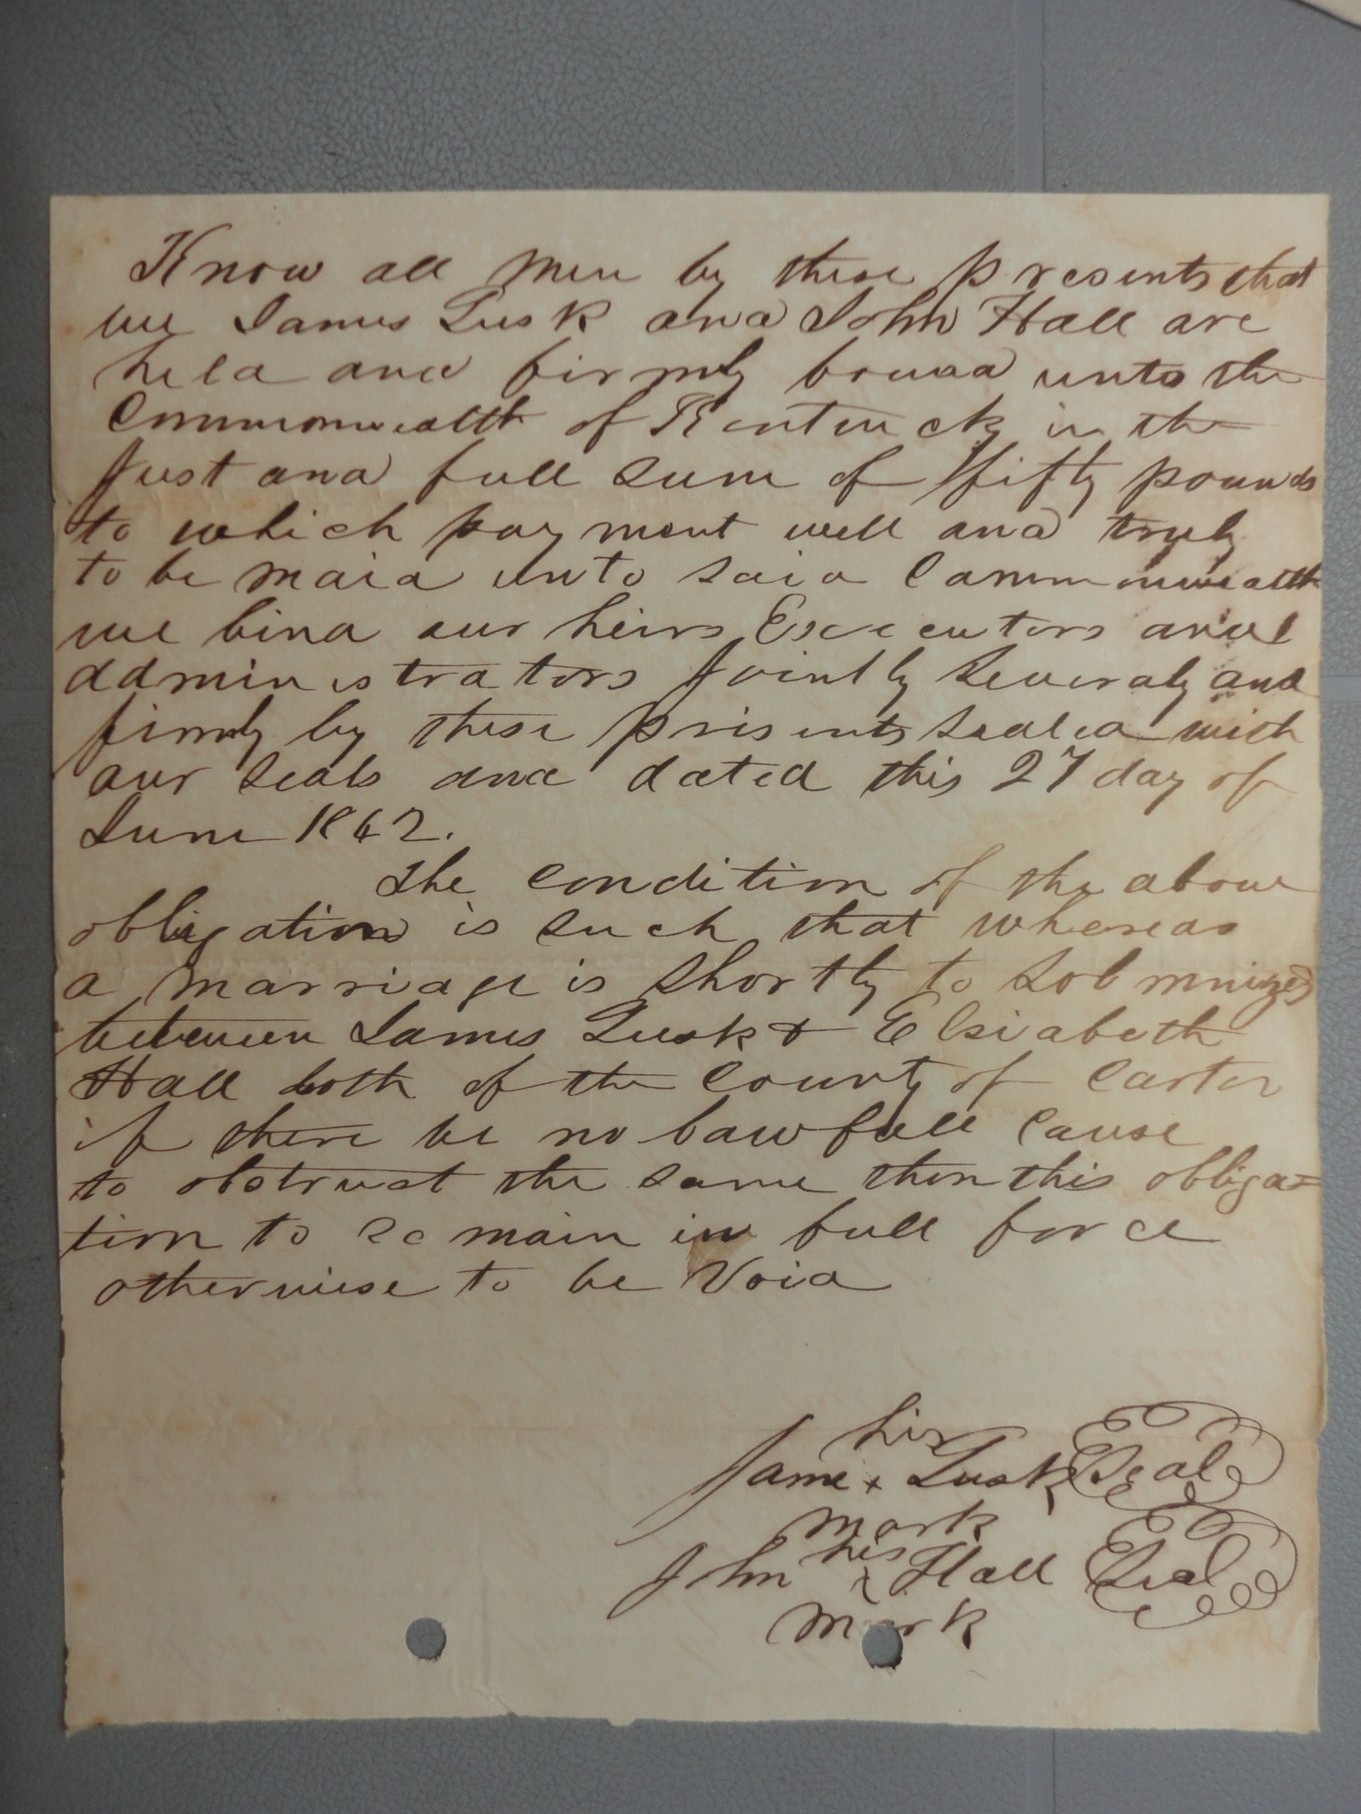 Know all men by these presents that
we James Lusk and John Hall are
held and firmly bound unto the
Commonwealth of Kentucky in the
just and full sum of fifty pounds
to which payment well and truly
to be maid unto said Commonwealth
we bind our heirs Executors and
administrators Jointly Severaly and
firmly by these presents sealed with
our seals and dated this 27 day of
June 1862.
The condition of the above
obligation is such that whereas
a marriage is shortly to Solemnized
between James Lusk & Elsiabeth
Hall both of the County of Carter
if there be no lawfull cause
to obstruct the same then this obliga=
tion to remain in full force
otherwise to be Void
his
James x Lusk Seal
mark
his
John x Hall Seal
mark